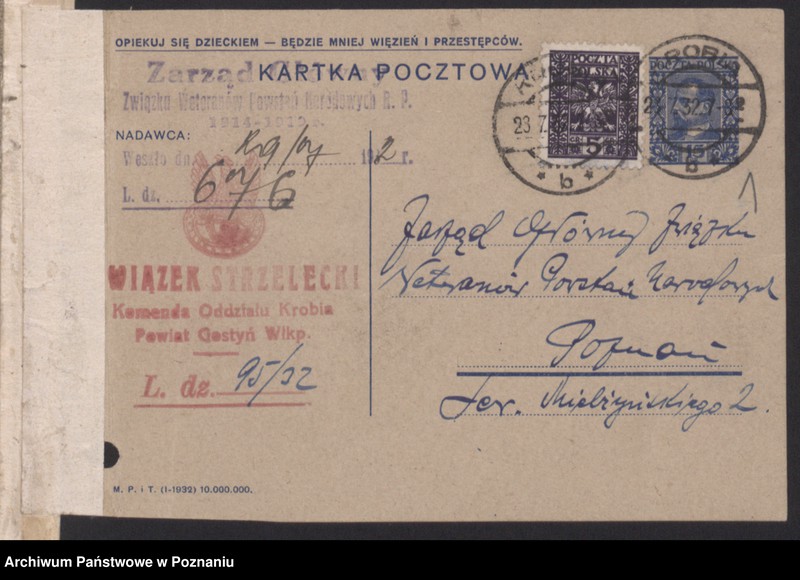 OPIEKUJ SIĘ DZIECKIEM — BĘDZIE MNIEJ WIĘZIEŃ I PRZESTĘPCÓW.
Zarząd Główny
KARTKA POCZTOWA
Związku Weteranów Powstań Narodowych R. P.
1914-1919 r.
NADAWCA:
Weszło dn. 29/07 1932 r.
L. dz. 676
ZWIĄZEK STRZELECKI
Komenda Oddziału Krobia
Powiat Gostyń Wlkp.
L. dz. 95/32
POCZTA
POLSKA
5
KROBIA
23 7 32
* b *
KROBIA
23.7.32
b *
15
Zarząd Główny Związku
Weteranów Powstań Narodowych
Poznań
Sew. Mielżyńskiego 2.
M. P. i T. (I-1932) 10.000.000.
Archiwum Państwowe w Poznaniu